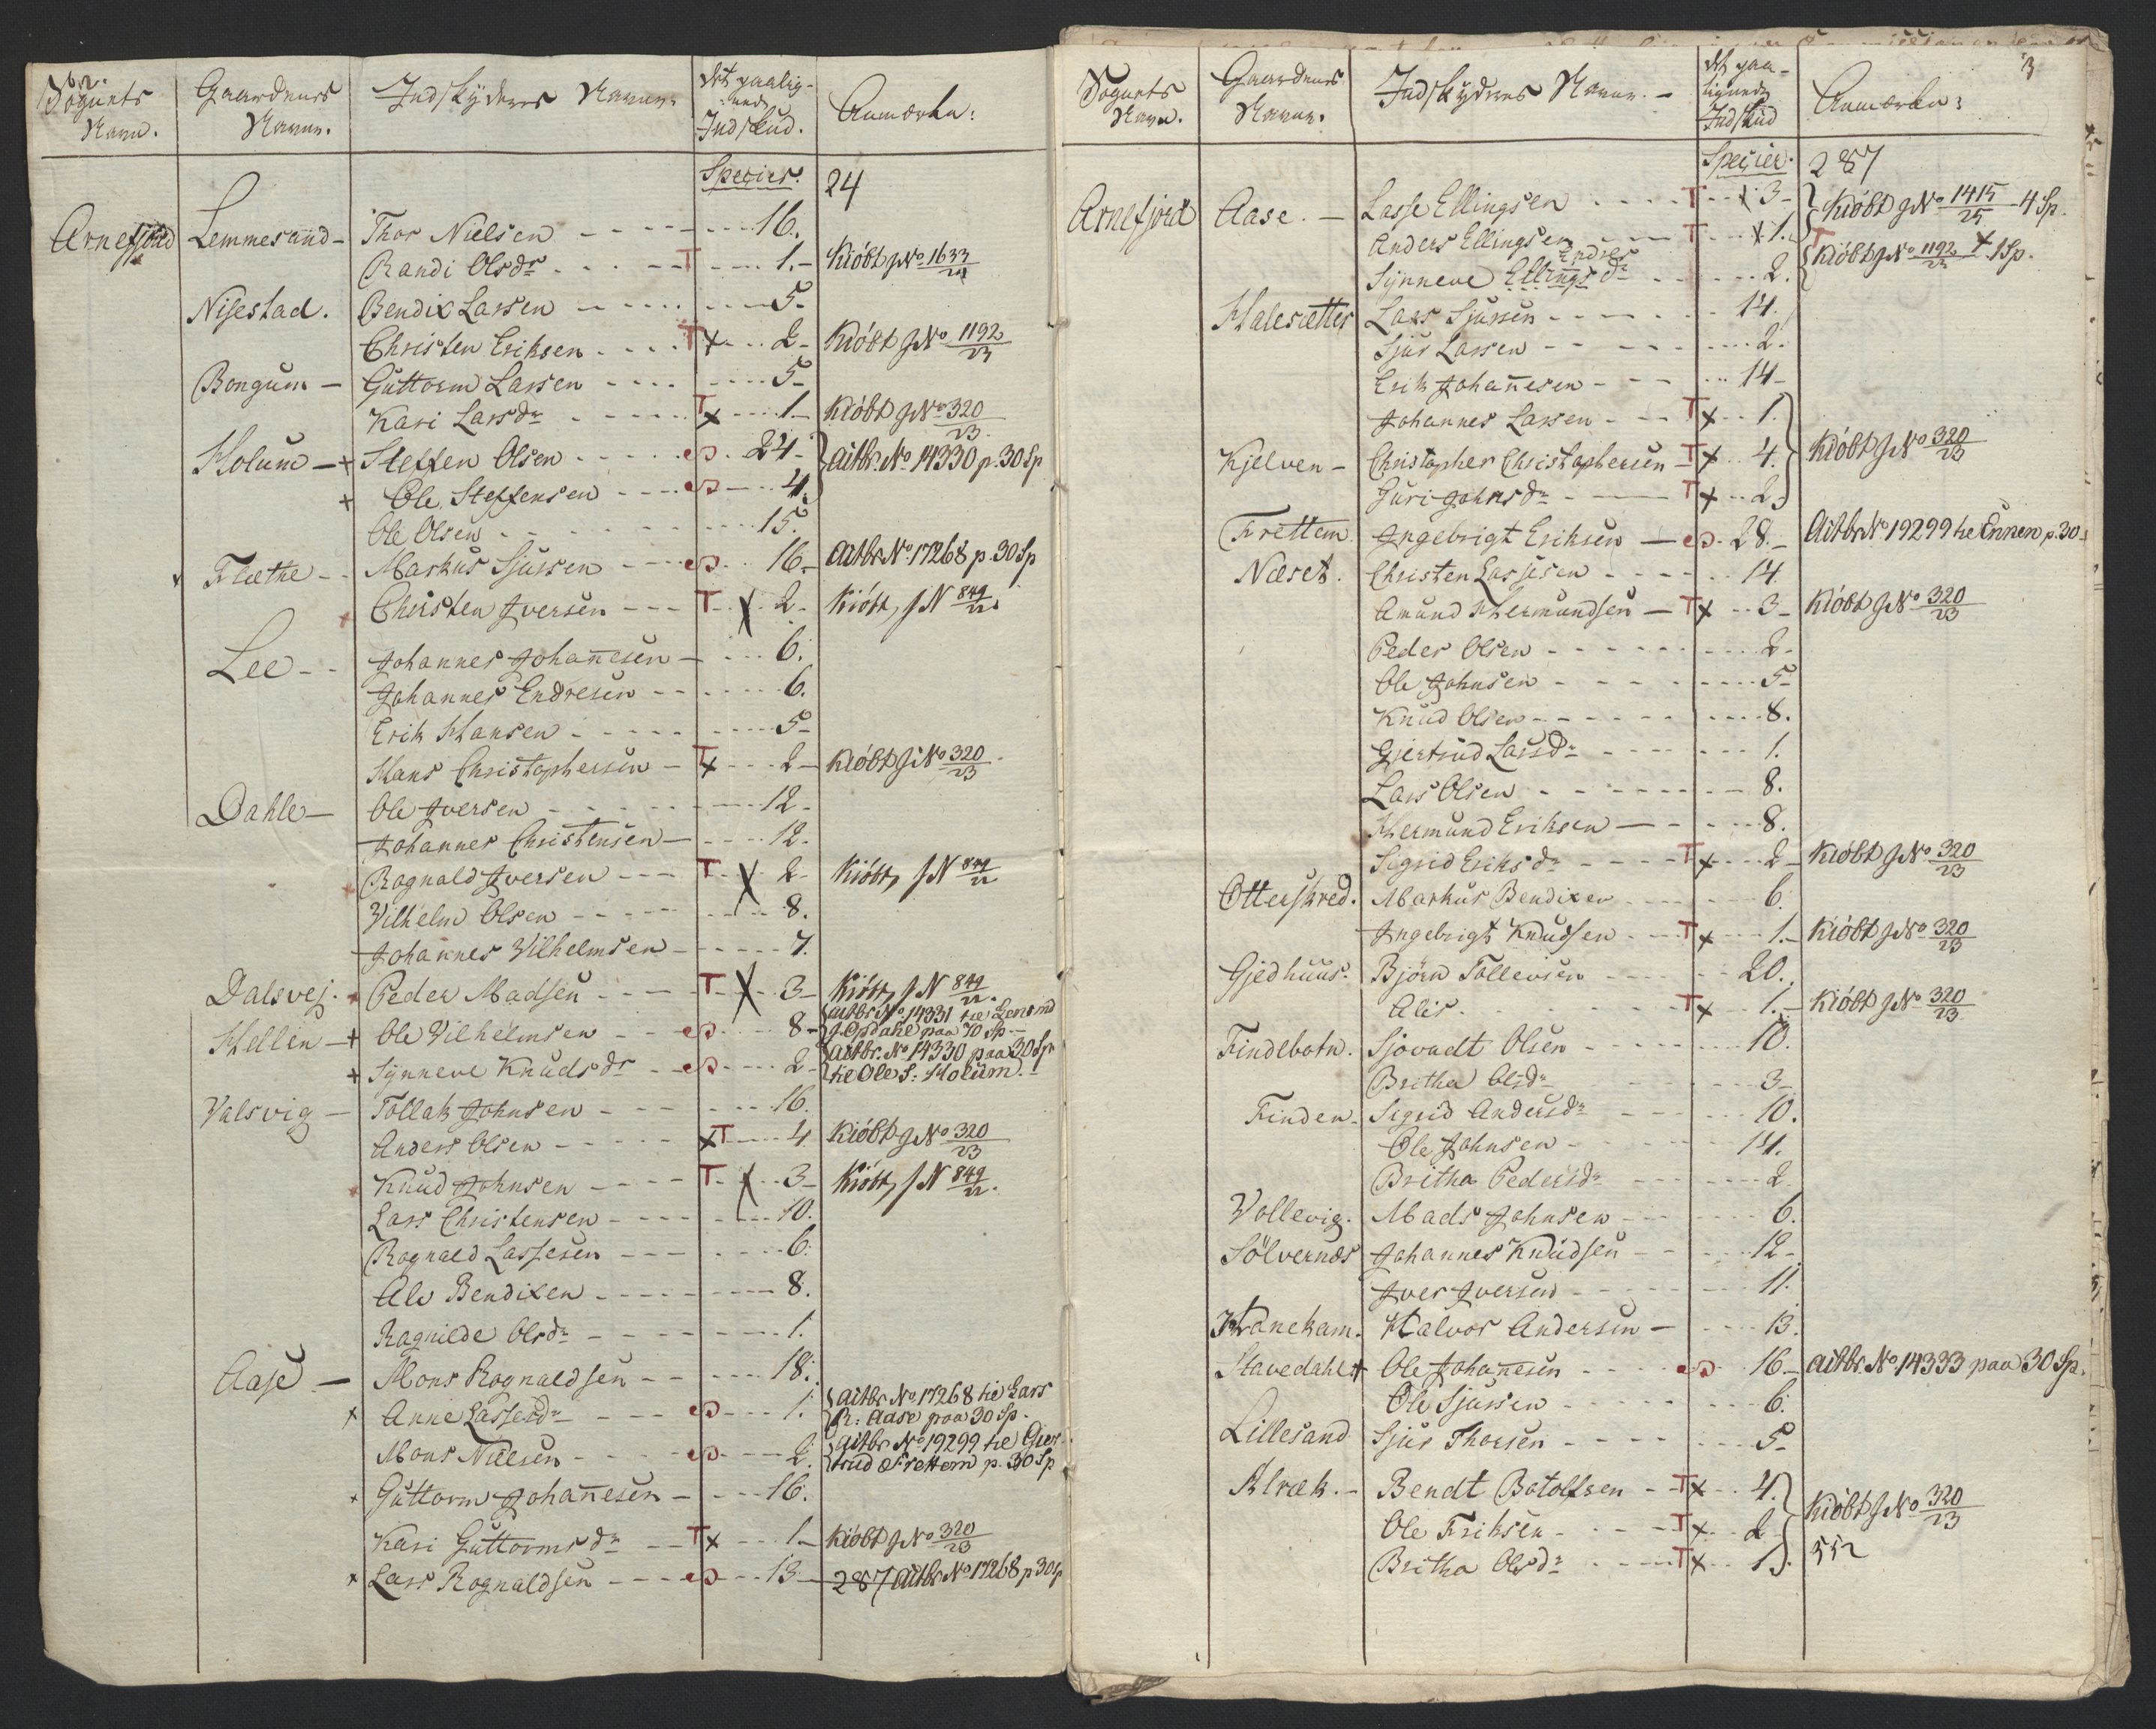 Sognets Navn. Gaardenes Navne. Indskydernes Navne. Det paalignede Indskud. Anmærkn:
Species. 24
Arnefjord Lemmesand - Thor Nielsen 16.
Randi Olsdr T 1. Kiöbt J No 1633/24
Nisestad. Bendix Larsen 5
Christen Eriksen T x 2 Kiöbt J No 1192/23
Bongum - Guttorm Larsen 5
Kari Larsdr T x 1 Kiöbt J No 320/23
Holum - + Steffen Olsen 24 actbr. No 14330 p. 30 Sp
+ Ole Steffensen 4.
Ole Olsen 15.
Fræthe - Markus Sjursen 16 actbr No 17268 p. 30 Sp
Christen Iversen T x 2. Kiöbt, J N 849/22
Lee - Johannes Johannesen 6.
Johannes Endresen 6.
Erik Hansen 5
Hans Christophersen T x 2 Kiöbt J No 320/23
Dahle - Ole Iversen 12.
Johannes Christensen 12.
Ragnald Iversen T x 2 Kiöbt, J N 849/22
Vilhelm Olsen 8.
Johannes Vilhelmsen 7.
Dalsvej. Peder Madsen T x 3 Kiöbt, J N 849/22.
Hellin - + Ole Vilhelmsen 8 actbr No 14331 til
Opdahl paa 70 Sp.
+ Synneve Knudsdr 2 actbr. No 14330 paa 30 Sp
til Ole S: Holum.
Valsvig - Tollak Johnsen 16.
Anders Olsen x T 4 Kiöbt J No 320/23
Knud Johnsen T x 3 Kiöbt, J N 849/22.
Lars Christensen 10.
Ragnald Lassesen 6.
Ale Bendixen 8.
Ragnilde Olsdr 1.
Aase - Mons Rognaldsen 18.
x Anne Lassesdr 1. actbr No 17268 til Lars
R: Aase paa 30 Sp.
Mons Nielsen 2. actbr No 19299 til Gier-
trud Frettem p. 30 Sp
x Guttorm Johannesen 16.
Kari Guttormsdr T x 1 Kiöbt J No 320/23
x Lars Rognaldsen 13 287 actbr No 17268 p 30 Sp
3
Sognets Navn. Gaardenes Navne. Indskydernes Navne. - Det paalignede Indskud Anmærkn:
Species. 287
Arnefjord Aase. - Lasse Ellingsen T x 3 Kiöbt J No 1415/25 - 4 Sp.
Anders Ellingsen T x 1.
Endres
Synneve Ellingsdr 2. Kiöbt J No 1192/23 x 1 Sp.
Halesætter Lars Sjursen 14.
Sjur Larsen 2.
Erik Johannesen 14
Johannes Larsen T x 1.
Kjelven - Christopher Christophersen T x 4. Kiöbt J No 320/23
Guri Johnsdr T x 2.
Frettem Ingebrigt Eriksen 28. Actbr No 19299 til Ennen p. 30
Næset. Christen Lassesen 14
Amund Hermundsen T x 3 Kiöbt J No 320/23
Peder Olsen 2
Ole Johnsen 5
Knud Olsen 8.
Gjertrud Larsdr 1.
Lars Olsen 8.
Hermund Eriksen 8.
Sigrid Eriksdr T x 2 Kiöbt J No 320/23
Otterskred. Markus Bendixen 6.
Ingebrigt Knudsen T x 1. Kiöbt J No 320/23
Gjedhuus. Björn Tollevsen 20.
Alis. T x 1. Kiöbt J No 320/23
Findebotn. Sjovadt Olsen 10.
Britha Olsdr 3
Finden. Sigrid Andersdr 10.
Ole Johnsen 14.
Britha Pedersdr 2
Vollevig. Mads Johnsen 6.
Sölvernæs Johannes Knudsen 12
Iver Iversen 11.
Tranekam. Halvor Andersen 13.
Stavedahl + Ole Johannesen 16 actbr. No 14333 paa 30 Sp.
Ole Sjursen 6.
Lillesand Sjur Thorsen 5
Alræk. - Bendt Botolfsen T x 4.
Ole Eriksen T x 2 Kiöbt J No 320/23
Britha Olsdr T x 1. 552